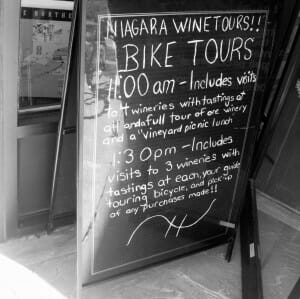 NIAGARA WINE TOURS!!
BIKE TOURS
11:00 am - Includes visits
to 4 wineries with tastings at
all and a full tour of one winery
and a "vineyard picnic lunch
1:30pm - Includes
visits to 3 wineries with
tastings at each, your guide
touring bicycle, and pick-up
of any purchases made!!